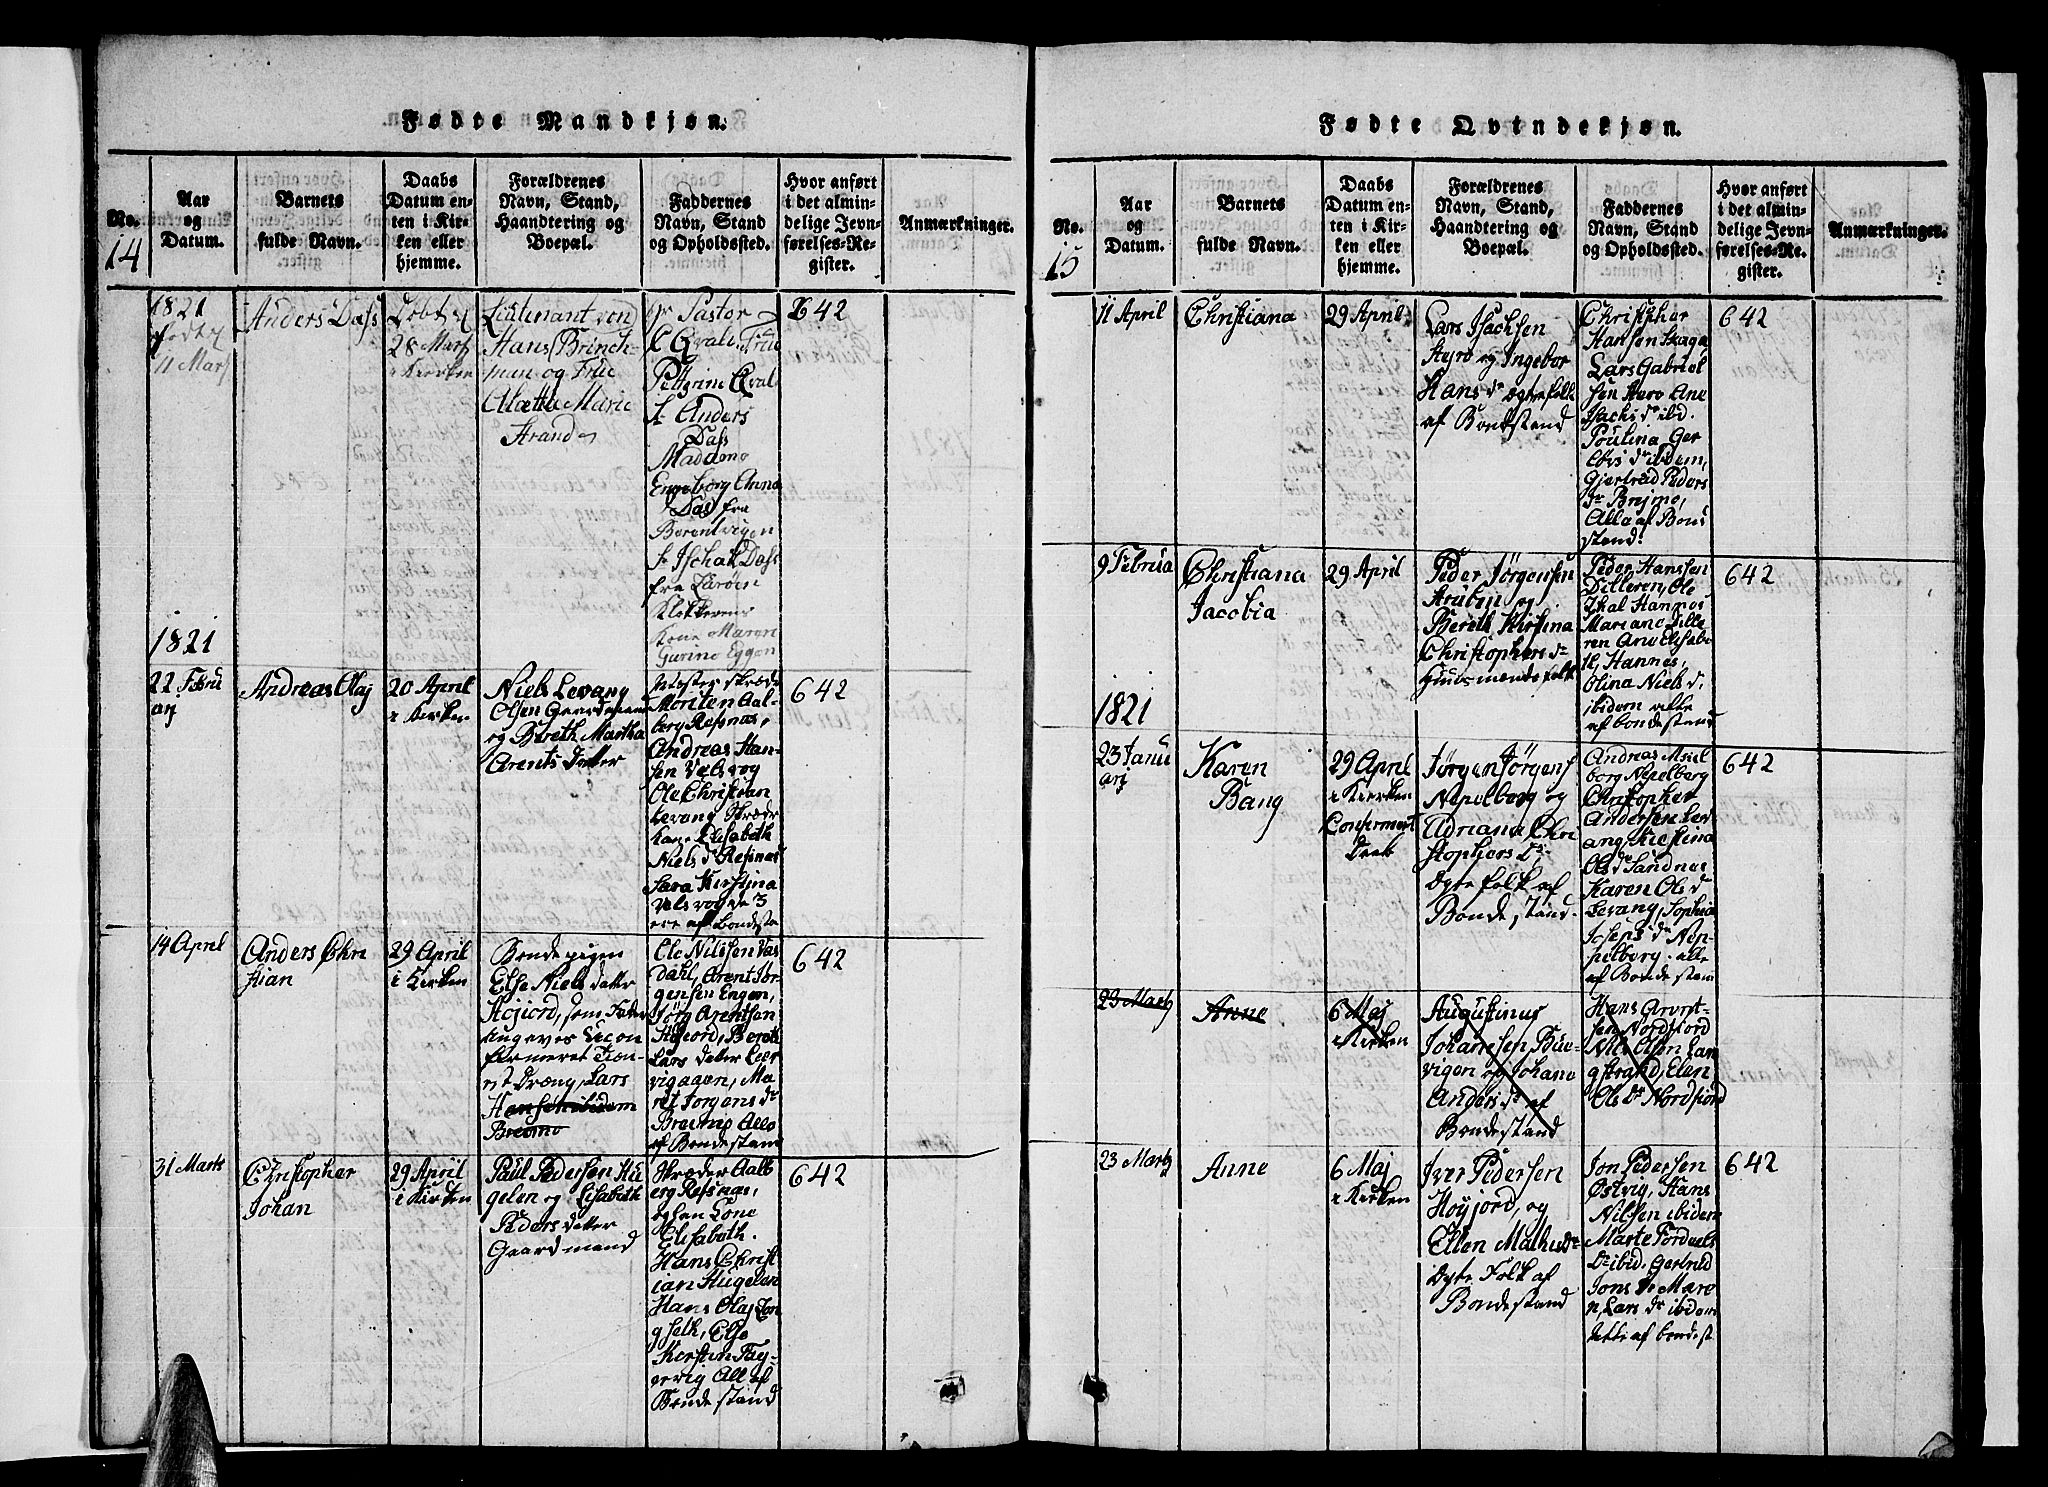 Fødte Mandkjøn.
No.
14
Aar
og
Datum.
Barnets
fulde Navn.
Daabs
Datum en-
ten i Kir-
ken eller
hjemme.
Forældrenes
Navn, Stand,
Haandtering og
Boepæl.
Faddernes
Navn, Stand
og Opholdssted.
Hvor anført
i det almin-
delige Jevn-
førelses-Re-
gister.
Anmærkninger.
1821
11 Marj
Anders Dass
Døbt
28 Marj
i Kierken
Lieutnant von
Hans Brinch-
man og Frue
Marie
Strand
Pastor
C Qvale Frue
Pettrine Qval
Anders
Dass
Madame
Engeborg Anna
Dass fra
Berentvigen
Ischak Dass
fra
Klokkerens
Kone Maren
Gurine Eggen
642
1821
22 Febru
arj
Andreas Olaj
20 April
i Kierken
Niels Levang
Olsen Gaardmand
og Bereth Martha
Arents Datter
Mester skræd
Morten Aal-
berg Refsnas,
Andreas Han-
sen Valsvog
Ole Christian
Levang Skræder
Kone Elisabeth
Niels dr Refsnas
Sara Kirstina
Valsvog de 3
ere af Bondesta
642
14 April
Anders Chri
stian
29 April
i Kirken
Bondepigen
Else Niels datter
Højjord, som Fader
angeves Ucon
firmeret
Dræng, Lars
Hansen ibidem
Breimo
Ole Nilssen Vas
dahl, Arent Jør
gensen Engen,
Jørg Arentsen
Højjord, Bereth
Lars datter Leer
vigagen, Ma
ret Jørgens dr
Breimo Alle
af Bondestand
642
31 Marts
Christopher
Johan
29 April
i Kirken
Paul Pedersen Hu
gelen og Lisabeth
Peders datter
Gaardmand
Skræder Aalb
erg Refsnas,
og han Cone
Elisabeth.
Hans Christ
ian Hugelen
Hans Olaj Lon
gseth, Else
Kirstin Fag-
vervig All af
Bondestand
642
Fødte Qvindekjøn.
No.
15
Aar
og
Datum.
Barnets
fulde Navn.
Daabs
Datum en-
ten i Kir-
ken eller
hjemme.
Forældrenes
Navn, Stand,
Haandtering og
Boepæl.
Faddernes
Navn, Stand
og Opholdssted.
Hvor anført
i det almin-
delige Jevn-
førelses-Re-
gister.
Anmærkninger.
11 April
Christiana
29 April
Lars Isachsen
Styrø og Ingebor
Hans dr ægtefolk
af Bondestand
Christopher
Hansen Skaga
Lars Gabriel
sen Ane
Isachs dr ibd.
Poulina Ger
ibidem,
Gjertrud Peders
dr Brejmo,
Alle af Bond
stand.
642
9 Februa
Christiana
Jacobia
29 April
Peder Jørgensen
og
Bereth Kirstina
Christophers dr
Huusmandsfolk
Peder Hanssen
Dilleren, Ole
Thal Hannes
Mariane Dille
ren Ane Elisabe
th, Hannes,
Olina Niels d.
ibidem alle
af bondestand
642
1821
23 Janu
arj
Karen
Bang
29 April
i Kierken
Confirmert
Daab
Jørgen Jørgens
Nepelborg og
Adriana Chri
stophers Dr
Ægte folk af
Bonde stand
Andreas
borg Nepelberg
Christopher
Andersen Lev
ang, Kirstina
Ols dr Sandnes
Karen Ols dr
Levang, Sophia
Josephs dr Nep-
pelberg. alle
af Bondestan
642
23 Martj
Anne
6 Maj
i Kirken
Augustinus
Johannesen Bue-
vigen og Johane
Anders dr af
Bondestand
Hans
sen Nordfjord
Nils Olsen Lan
gstrand, Elen
Ols Dr Nordfjord
23 Martj
Anne
6 Maj
i Kirken
Iver Pedersen
Høyjord, og
Ellen
Ægte Folk af
Bondestand
Jon Pedersen
Østvig, Hans
Nilsen ibidem
Marte
Dr ibid. Gertrud
Jons Dr Mare
n, Lars dr ibidem
Alle af bondest
642